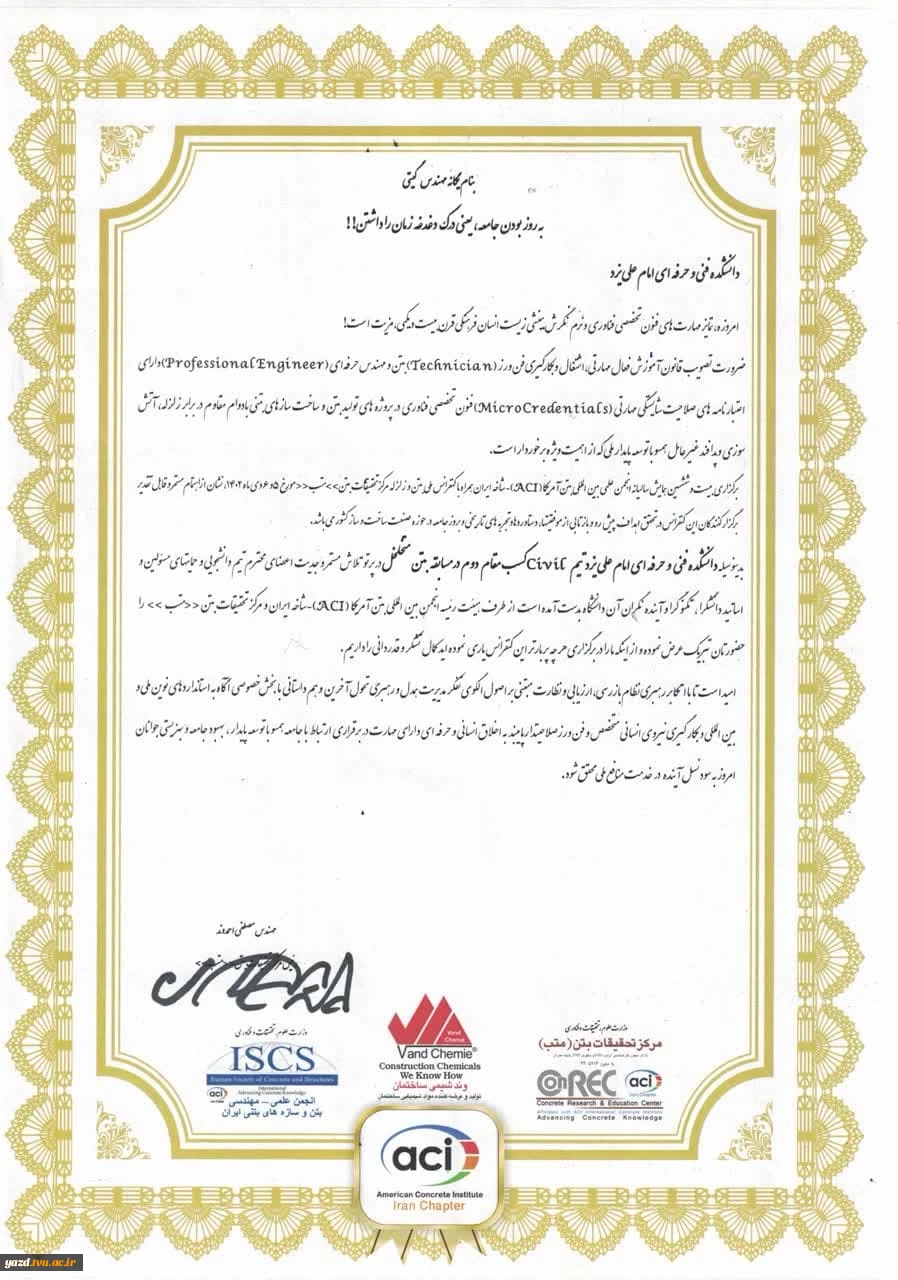 بنام یگانه مهندس گیتی
به روز بودن جامعه، یعنی درک دغدغه زمان را داشتن!!
دانشکده فنی و حرفه ای امام علی یزد
امروزه، تمایز مهارت های فنون تخصصی فناوری و نرم نگرش بینشی زیست انسان فرهنگی قرن بیست و یکمی، مزیت است!
ضرورت تصویب قانون آموزش فعال مهارتی، اشتغال و بکارگیری فن ورز (Technician) بتن و مهندس حرفه ای (Professional Engineer) دارای
اعتبارنامه های صلاحیت شایستگی مهارتی (MicroCredentials) فنون تخصصی فناوری در پروژه های تولید بتن و ساخت سازهای بتنی بادوام مقاوم در برابر زلزله، آتش
سوزی و پدافند غیرعامل همسو با توسعه پایدار ملی که از اهمیت ویژه برخوردار است.
برگزاری بیست و ششمین همایش سالیانه انجمن علمی بین المللی بتن آمریکا (ACI)-شاخه ایران همراه با کنفرانس ملی بتن و زلزله مرکز تحقیقات بتن >>متب<< مورخ ۵ و ۶ دی ماه ۱۴۰۲، نشان از اهتمام مستمر و قابل تقدیر
برگزار کنندگان این کنفرانس در تحقق اهداف پیش رو و بازتابی از موفقیتها، دستاوردها و تجربه های تاریخی و بروز جامعه در حوزه صنعت ساخت و ساز کشور می باشد.
بدینوسیله دانشکده فنی و حرفه ای امام علی یزد تیم Civil کسب مقام دوم در مسابقه بتن متخلخل در پرتو تلاش مستمر و جدیت اعضای محترم تیم دانشجویی و حمایتهای مسئولین و
اساتید دانشگرا، تکنوکرا و آینده نگران آن دانشگاه بدست آمده است از طرف هیئت رئیسه انجمن بین المللی بتن آمریکا (ACI)-شاخه ایران و مرکز تحقیقات بتن <<متب>> را
حضورتان تبریک عرض نموده و از اینکه ما را در برگزاری هرچه پربارتر این کنفرانس یاری نموده اید کمال تشکر و قدردانی را داریم.
امید است تا با اتکا بر رهبری نظام بازرسی، ارزیابی و نظارت مبتنی بر اصول الگوی تفکر مدیریت همدل و رهبری تحول آخرین و هم داستانی با بخش خصوصی آگاه به استانداردهای نوین ملی و
بین المللی و بکارگیری نیروی انسانی متخصص و فن ورز صلاحیتدار پایبند به اخلاق انسانی و حرفه ای دارای مهارت در برقراری ارتباط با جامعه همسو با توسعه پایدار، بهبود جامعه و بهزیستی جوانان
امروز به سود نسل آینده در خدمت منافع ملی محقق شود.
مهندس مصطفی احمدوند
وزارت علوم، تحقیقات و فناوری
ISCS
Iranian Society of Concrete and Structures
aci
International
Advancing Concrete Knowledge
انجمن علمی – مهندسی
بتن و سازه های بتنی ایران
Vand Chemie
Vand Chemie®
Construction Chemicals
We Know How
وند شیمی ساختمان
تولید و عرضه کننده مواد شیمیایی ساختمان
وزارت علوم، تحقیقات و فناوری
مرکز تحقیقات بتن (متب)
ConREC
aci
Iran Chapter
Concrete Research & Education Center
Affiliated with ACI International Concrete Institute
Advancing Concrete Knowledge
aci
American Concrete Institute
Iran Chapter
yazd.tvu.ac.ir